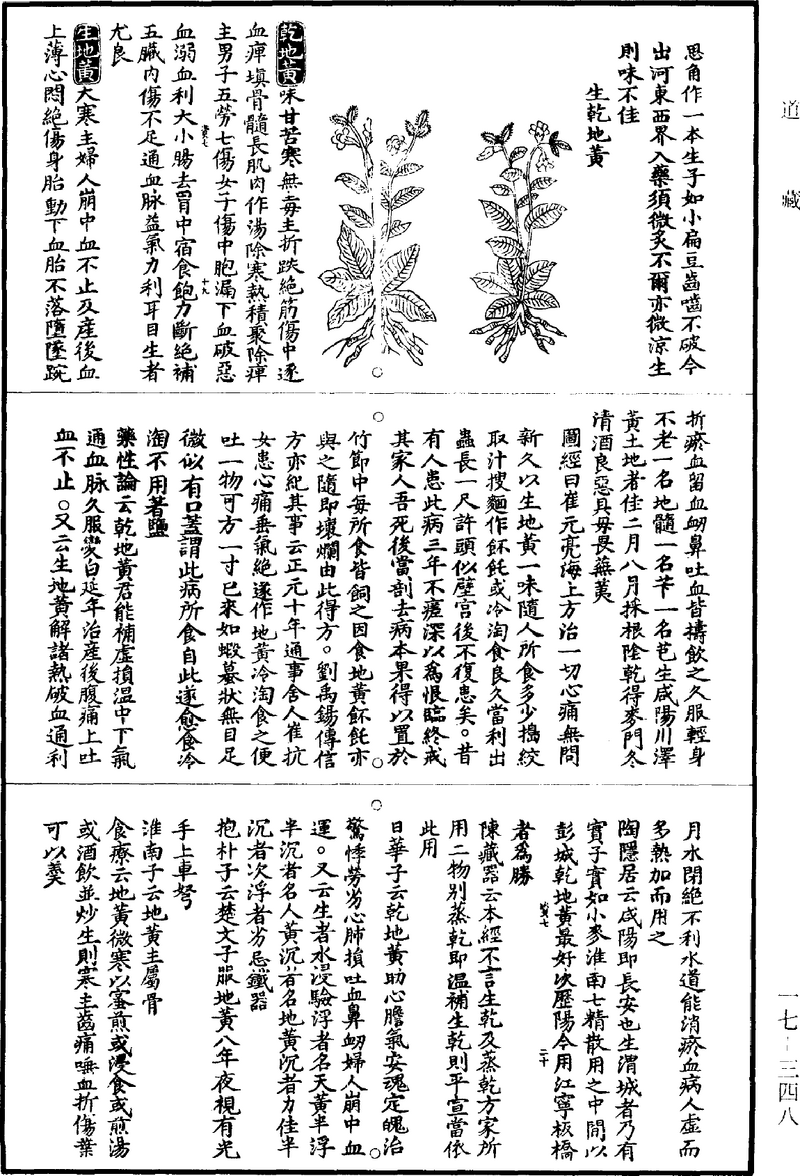 道藏
思角作一本生子如小扁豆齒嚙不破今
出河東西界入藥須微炙不爾亦微涼生
則味不佳
生乾地黃
乾地黃味甘苦寒無毒主折跌絕筋傷中逐
血痺塡骨髓長肌肉作湯除寒熱積聚除痺
主男子五勞七傷女子傷中胞漏下血破惡
血溺血利大小腸去胃中宿食飽力斷絕補
五臟內傷不足通血脉益氣力利耳目生者
尤良
生地黃大寒主婦人崩中血不止及產後血
上薄心悶絕傷身胎動下血胎不落墮墜踠
折瘀血留血衂鼻吐血皆擣飲之久服輕身
不老一名地髓一名芐一名芑生咸陽川澤
黃土地者佳二月八月採根陰乾得麥門冬
清酒良惡貝母畏蕪荑
圖經曰崔元亮海上方治一切心痛無問
新久以生地黃一味隨人所食多少搗絞
取汁搜麵作飥或冷淘食良久當利出
蟲長一尺許頭似壁宮後不復患矣。昔
有人患此病三年不瘥深以爲恨臨終戒
其家人吾死後當剖去病本果得以置於
竹節中每所食皆飼之因食地黃飥亦
與之隨即壞爛由此得方。劉禹錫傳信
方亦紀其事云正元十年通事舍人崔抗
女患心痛垂氣絕遂作地黃冷淘食之便
吐一物可方一寸已來如蝦蟇狀無目足
微似有口蓋謂此病所食自此遂愈食冷
淘不用著鹽
藥性論云乾地黃君能補虛損溫中下氣
通血脉久服變白延年治產後腹痛上吐
血不止。又云生地黃解諸熱破血通利
月水閉絕不利水道能消瘀血病人虛而
多熱加而用之
陶隱居云咸陽即長安也生渭城者乃有
實子實如小麥淮南七精散用之中間以
彭城乾地黃最好次歷陽今用江寧板橋
者爲勝
陳藏器云本經不言生乾及蒸乾方家所
用二物別蒸乾即溫補生乾則平宣當依
此用
日華子云乾地黃助心膽氣安魂定魄治
驚悸勞劣心肺損吐血鼻衂婦人崩中血
運。又云生者水浸驗浮者名天黃半浮
半沉者名人黃沉者名地黃沉者力佳半
沉者次浮者劣忌鐵器
抱朴子云楚文子服地黃八年夜視有光
手上車弩
淮南子云地黃主屬骨
食療云地黃微寒以蜜煎或浸食或煎湯
或酒飲並炒生則寒主齒痛嚥血折傷葉
可以羹
一七-三四八